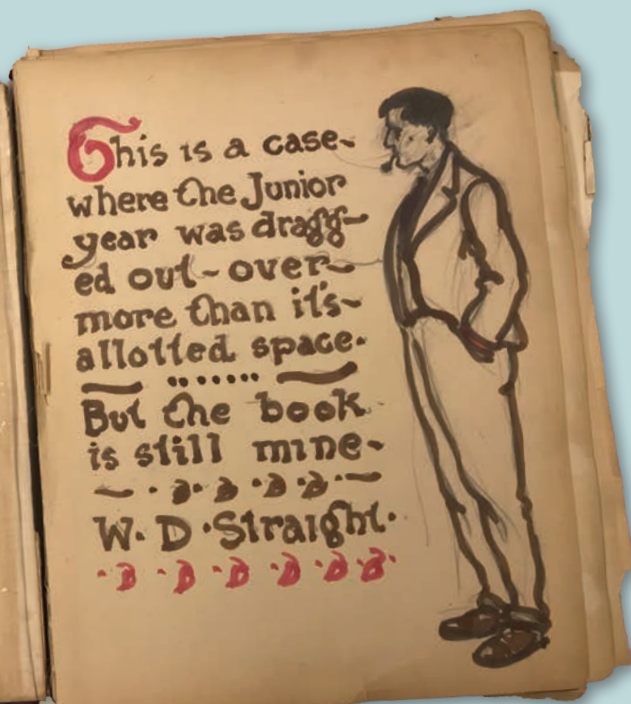 This is a case-
where the Junior
year was dragg-
ed out - over-
more than it's-
allotted space.
But the book
is still mine-
W. D. Straight.